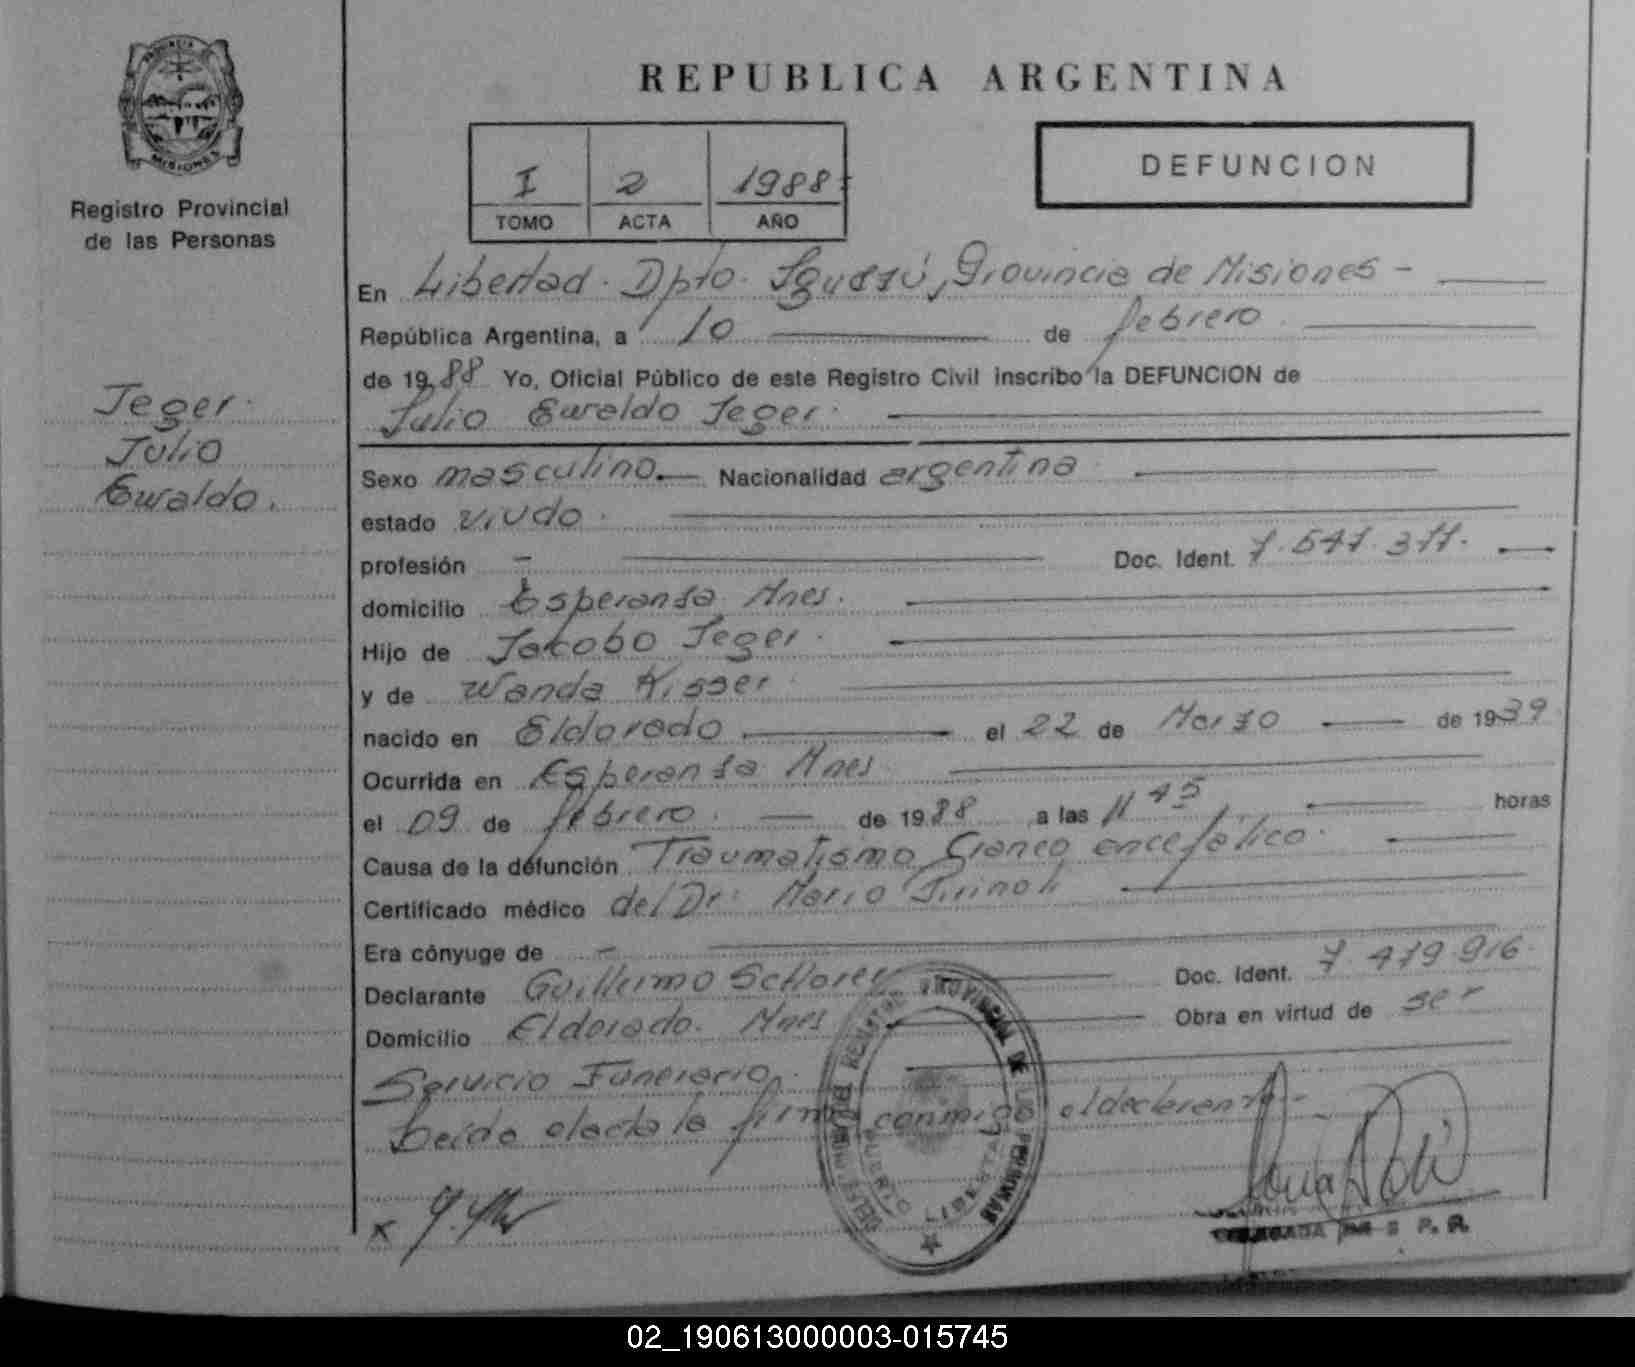 PROVINCIA
MISIONES
Registro Provincial
de las Personas
Jeger
Julio
Ewaldo.
REPUBLICA ARGENTINA
I 2 1988
TOMO ACTA AÑO
DEFUNCION
En Libertad. Dpto. Iguazú, Provincia de Misiones -
República Argentina, a 10 de febrero
de 1988 Yo, Oficial Público de este Registro Civil inscribo la DEFUNCION de
Julio Ewaldo Jeger
Sexo masculino. Nacionalidad argentina
estado viudo.
profesión - Doc. Ident. 7.541.311.
domicilio Esperanza Mnes.
Hijo de Jacobo Jeger.
y de Wanda Kisser
nacido en Eldorado el 22 de Marzo de 1939
Ocurrida en Esperanza Mnes
el 09 de febrero. de 1988 a las 11 45 horas
Causa de la defunción Traumatismo Craneo encefálico.
Certificado médico del Dr. Mario
Era cónyuge de -
Declarante Guillermo Doc. Ident. 7.479.916
Domicilio Eldorado. Mnes Obra en virtud de ser
Servicio Funerario.
Leída el acta la firma conmigo el declarante -
PROVINCIAL DE LAS PERSONAS
LIBERTAD
02_190613000003-015745